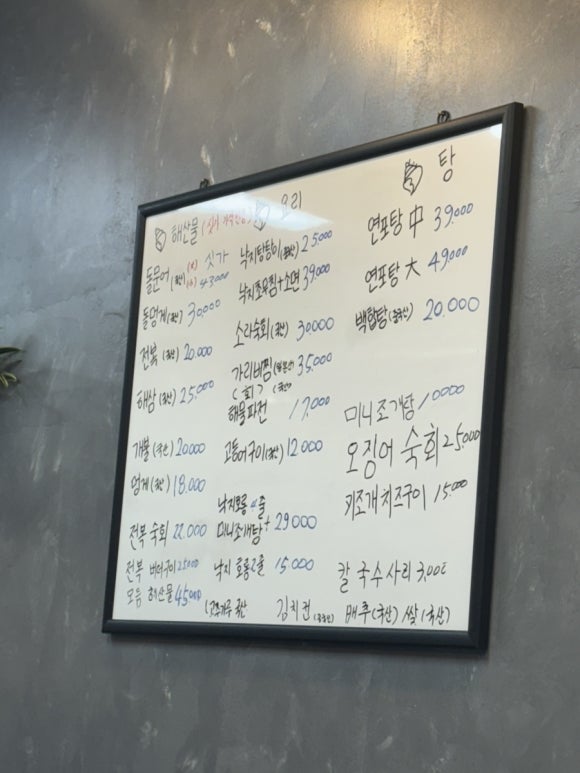 해산물
돌문어 (국산) (大) 싯가
(小) 43000
돌멍게 (국산) 30,000
전복 (국산) 20.000
해삼 (국산) 25.000
개불 (국산) 20000
멍게 (국산) 18.000
전복 숙회 22.000
전복 버터구이 25000
모듬 해산물 45,000
요리
낙지탕탕이 25000
낙지초무침+소면 39.000
소라숙회 (국산) 30000
가리비찜 35,000
(회)
해물파전 17,000
고등어구이 (국산) 12000
낙지호롱 2줄
미니조개탕 + 29000
낙지 호롱 2줄 15.000
고춧가루 국산
탕
연포탕 中 39.000
연포탕 大 49.000
백합탕 (중국산) 20.000
미니조개탕 10000
오징어 숙회 25.000
키조개치즈구이 15.000
칼국수사리 3.000
김치전 배추(국산) 쌀(국산)